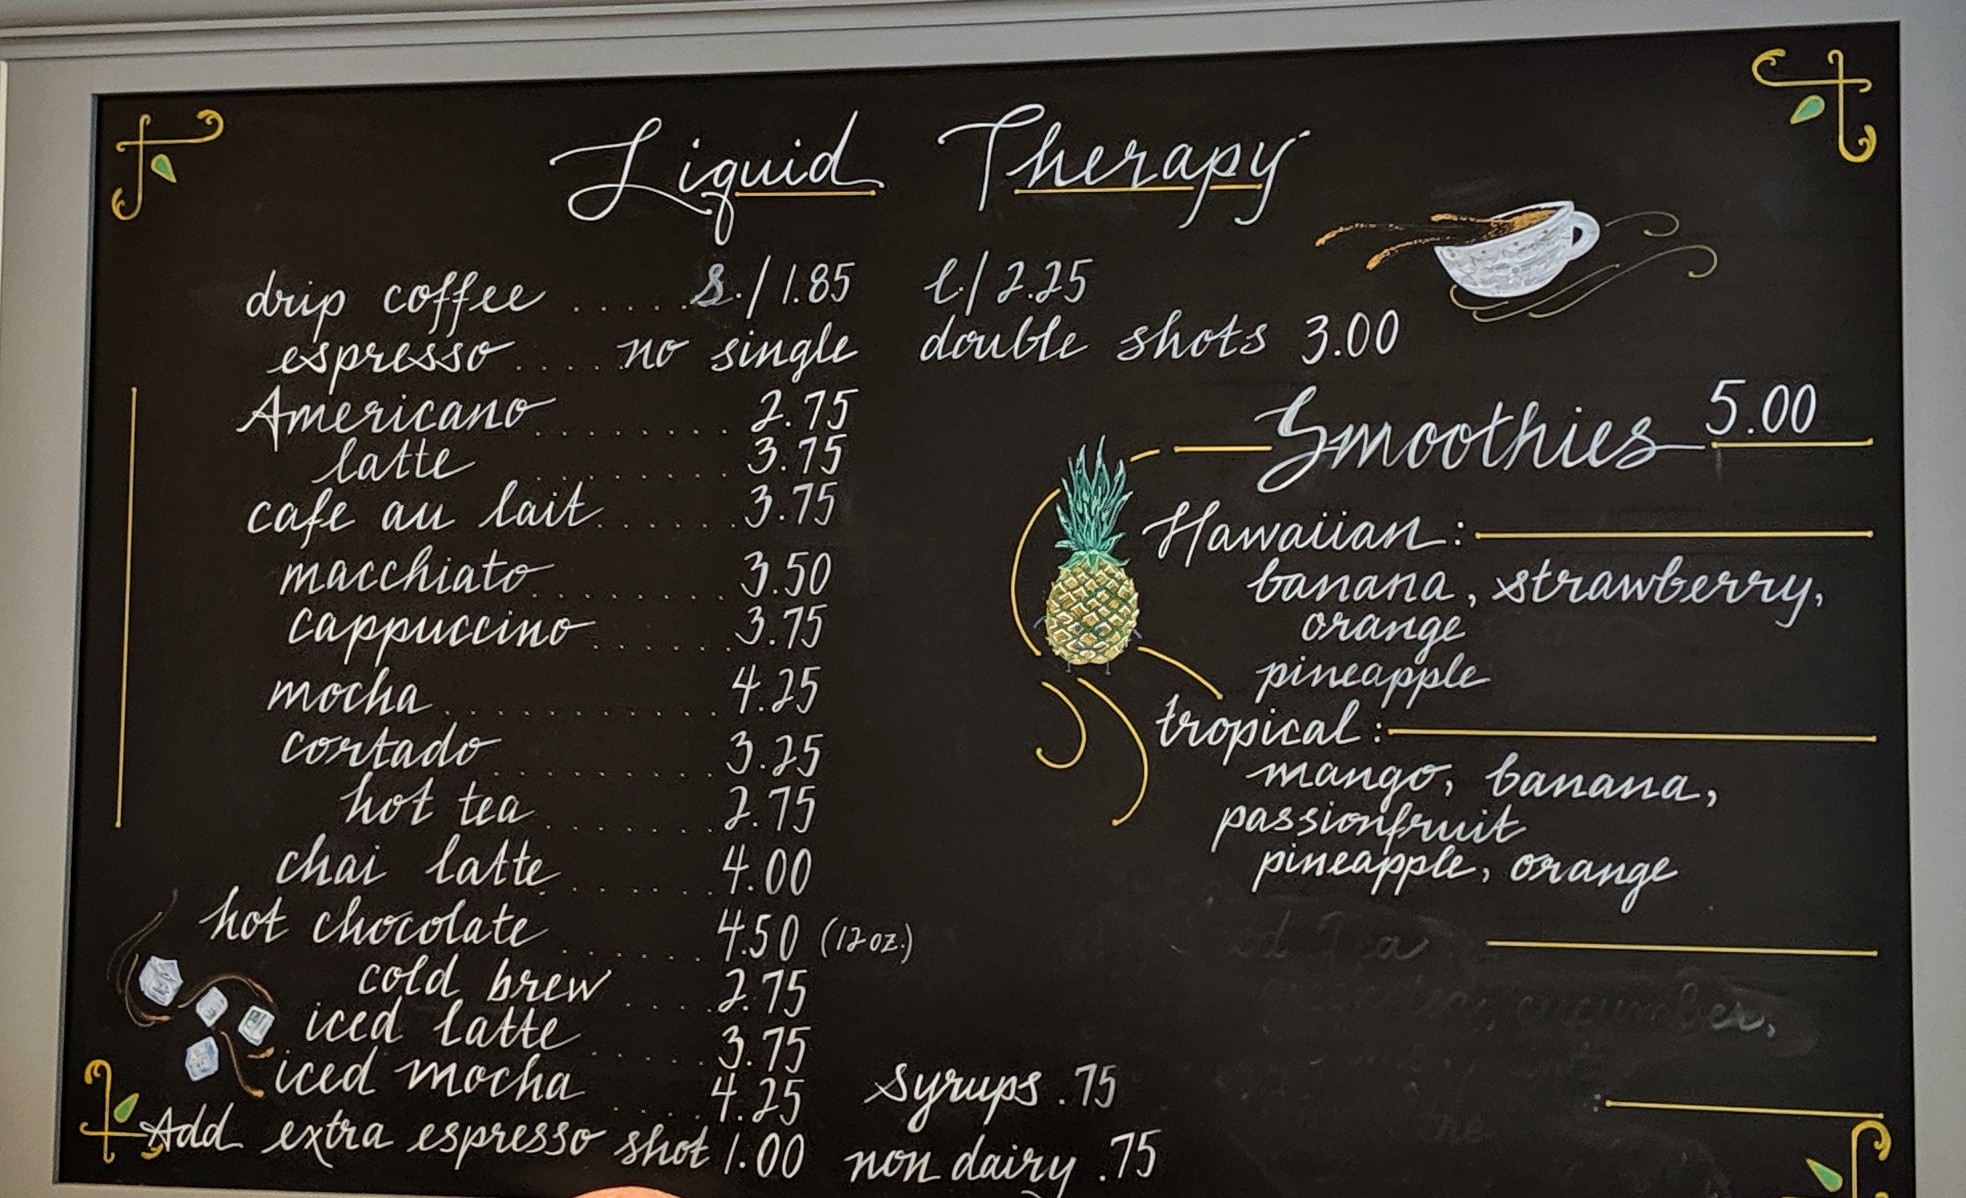 Liquid Therapy
drip coffee ..... s./1.85 l./2.25
espresso .... no single double shots 3.00
Americano ........ 2.75
latte ........ 3.75
cafe au lait ...... 3.75
macchiato ........ 3.50
cappuccino ...... 3.75
mocha ............ 4.25
cortado ......... 3.25
hot tea ........ 2.75
chai latte ....... 4.00
hot chocolate ....... 4.50 (12 oz.)
cold brew .... 2.75
iced latte ..... 3.75
iced mocha .... 4.25
Add extra espresso shot 1.00
syrups .75
non dairy .75
Smoothies 5.00
Hawaiian :
banana, strawberry,
orange
pineapple
tropical :
mango, banana,
passionfruit
pineapple, orange
Tea
cucumber,